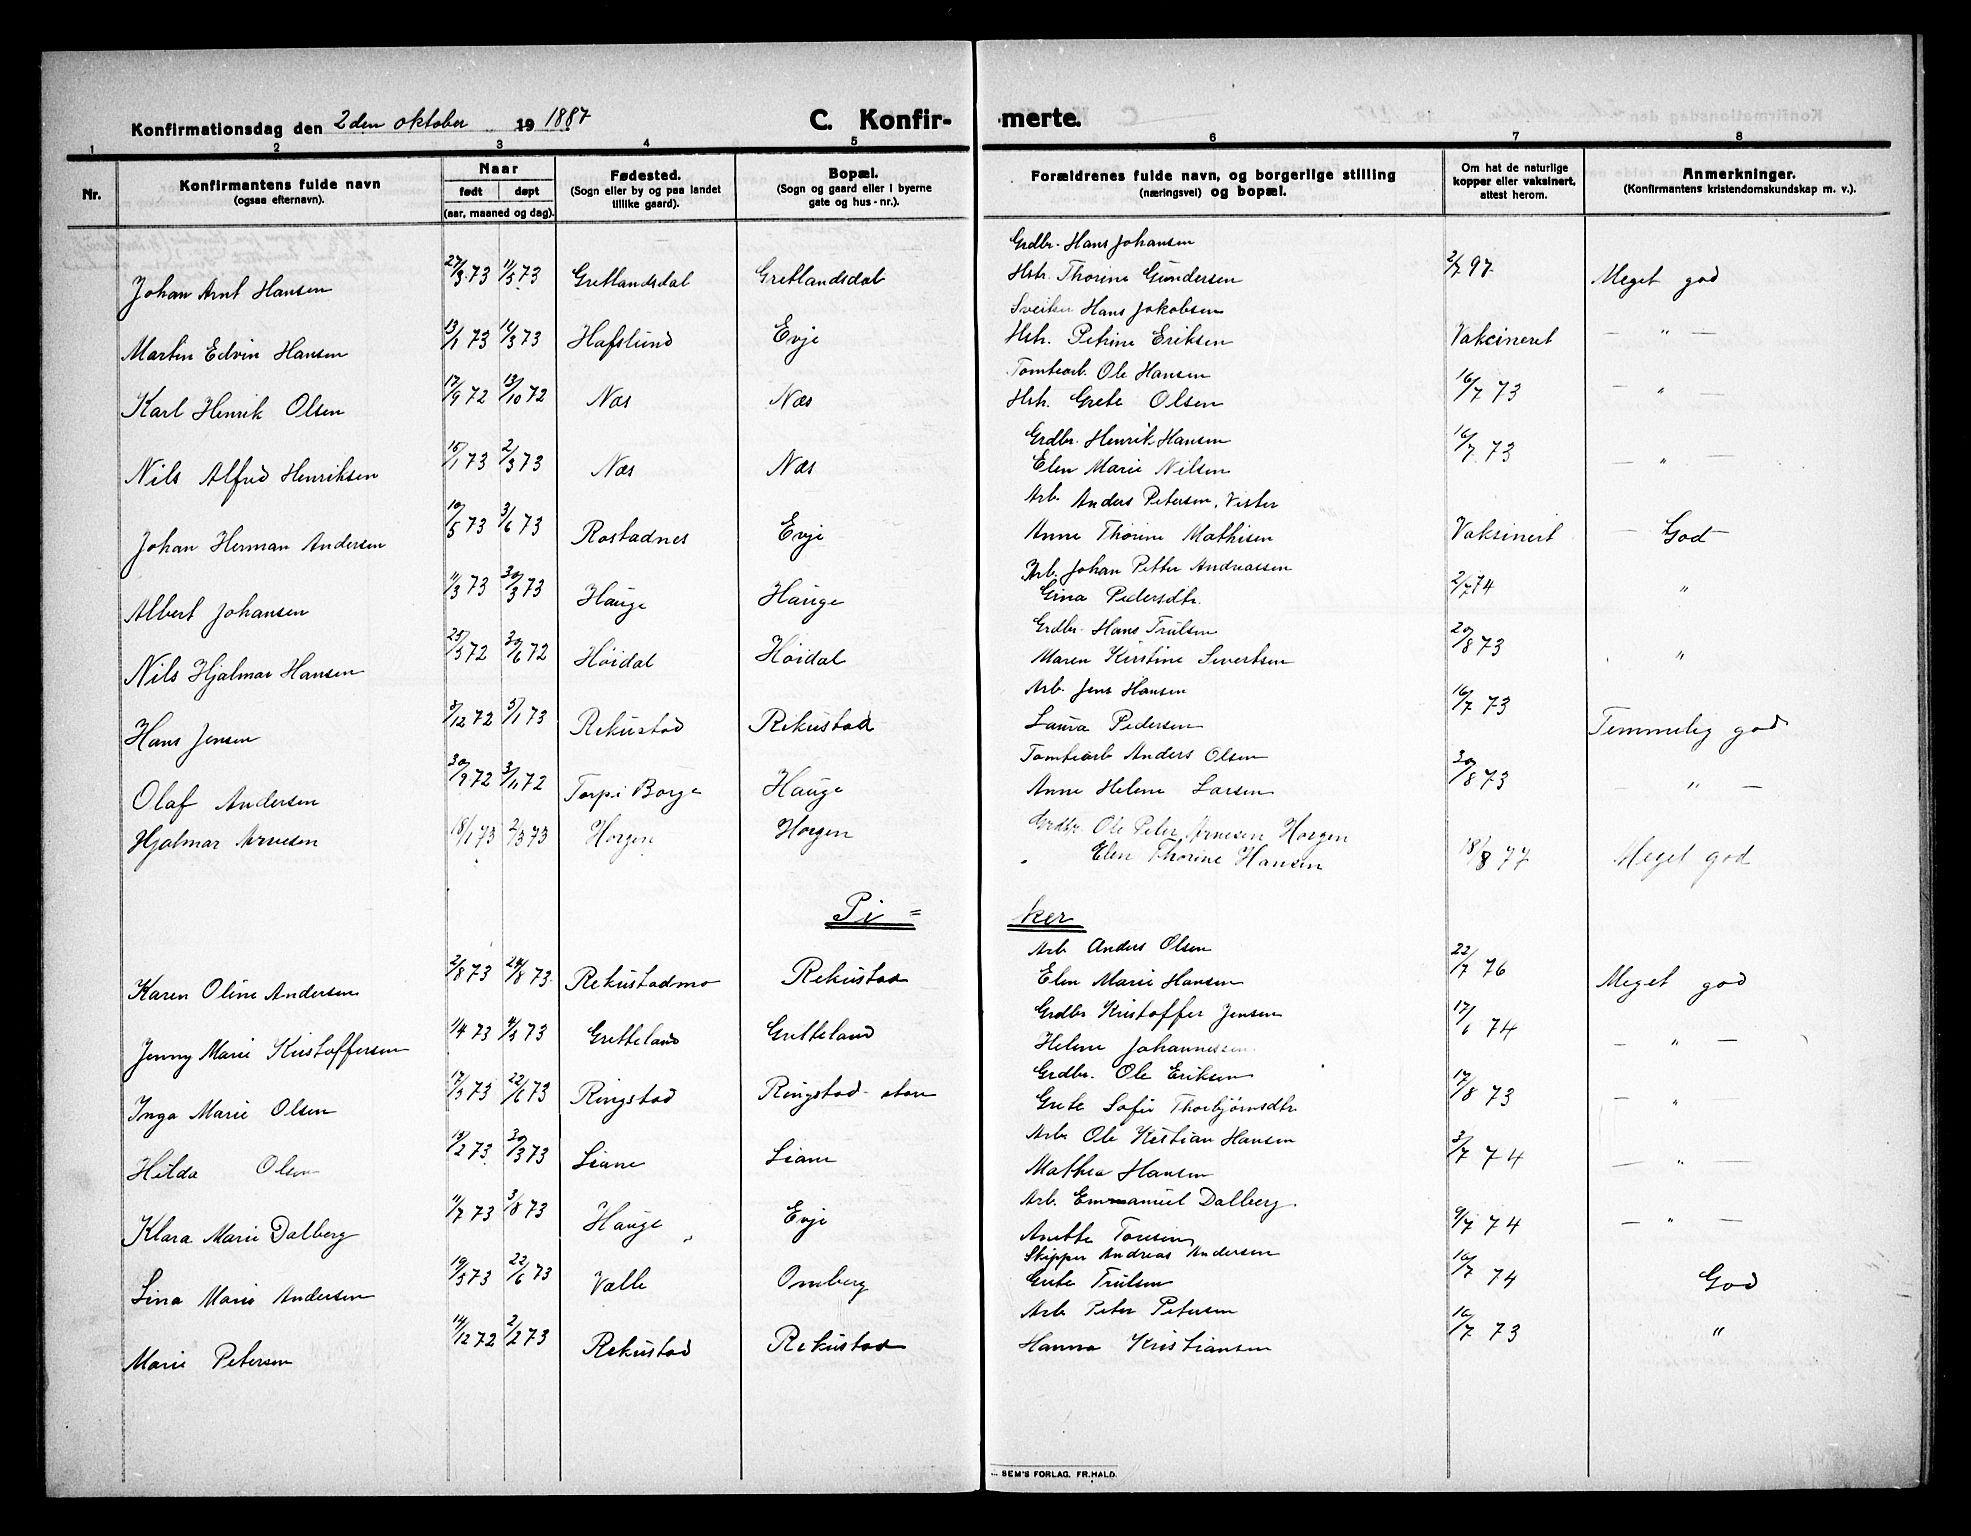 Konfirmationsdag den 2den oktober 19 1887 C. Konfir- merte.
1 2 3 4 5 6 7 8
Nr. Konfirmantens fulde navn (ogsaa efternavn). Naar født døpt (aar, maaned og dag). Fødested. (Sogn eller by og paa landet tillike gaard). Bopæl. (Sogn og gaard eller i byerne gate og hus-nr.). Forældrenes fulde navn, og borgerlige stilling (næringsvei) og bopæl. Om hat de naturlige kopper eller vaksinert, attest herom. Anmerkninger. (Konfirmantens kristendomskundskap m. v.).
Grdbr. Hans Johansen
Johan Arnt Hansen 27/3 73 11/5 73 Gretlandsdal Gretlandsdal Hstr. Thorine Gundersen 2/7 97. Meget god
Hans Jakobsen
Martin Edvin Hansen 13/1 73 16/3 73 Hafslund Evje Hstr. Petrine Eriksen Vaksineret — " —
Tomtearb. Ole Hansen
Karl Henrik Olsen 17/9 72 13/10 72 Næs Næs Hstr. Grete Olsen 16/7 73 — "
Grdbr. Henrik Hansen
Nils Alfred Henriksen 15/1 73 2/3 73 Næs Næs Elen Marie Nilsen 16/7 73 — " —
Arb. Anders Petersen, Vister
Johan Herman Andersen 10/5 73 3/6 73 Rostadnes Evje Anne Thorine Mathisen Vaksinert — God —
Arb. Johan Petter Andreassen
Albert Johansen 11/3 73 30/3 73 Hauge Hauge Gina Pedersdtr. 2/7 74 "
Grdbr. Hans Trulsen
Nils Hjalmar Hansen 25/5 72 30/6 72 Höidal Höidal Maren Kirstine Sivertsen 20/8 73 "
Arb. Jens Hansen
Hans Jensen 3/12 72 5/1 73 Rekustad Rekustad Laura Pedersen 16/7 73 Temmelig god
Tomtearb Anders Olsen
Olaf Andersen 30/9 72 3/11 72 Torpi Borge Hauge Anne Helene Larsen 30/8 73 " —
Hjalmar Arnesen 18/1 73 2/3 73 Horgen Horgen Grdbr Ole Peter Arnesen Horgen
Elen Thorine Hansen 18/8 77 Meget god
Pi= ker
Arb Anders Olsen
Karen Oline Andersen 2/8 73 24/8 73. Rekustadmo Rekustad Elen Marie Hansen 22/7 76 Meget god
Grdbr Kristoffer Jensen
Jenny Marie Kristoffersen 1/4 73 4/5 73 Gretteland Gretteland Helene Johannessen 17/6 74 — " —
Grdbr. Ole Eriksen
Inga Marie Olsen 17/5 73 22/6 73 Ringstad Ringstad Grete Sofie Thorbjørnsdtr. 17/8 73 — "
Arb Ole Kristian Hansen
Hilda Olsen 12/2 73. 30/3 73 Liane Liane Mathea Hansen 3/7 74 — " —
Arb. Emmanuel Dalberg
Klara Marie Dalberg 11/7 73 3/8 73 Hauge Evje Anette 9/7 74 — " —
Skipper Andreas Andersen
Lina Marie Andersen 19/5 73 22/6 73 Valle Omberg Grete Trulsen 10/7 74 God
Arb Peter Petersen
Marie Petersen 14/12 72 2/2 73 Rekustad Rekustad Hanna Kristiansen 16/7 73 "
SEM'S FORLAG, FR.HALD.